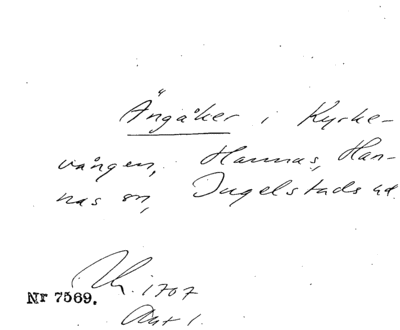 Ängåker i Kyrke-
vången, Hannas, Han-
nas sn, Ingelstads hd.
1707
Nr 7569.
Akt 1.